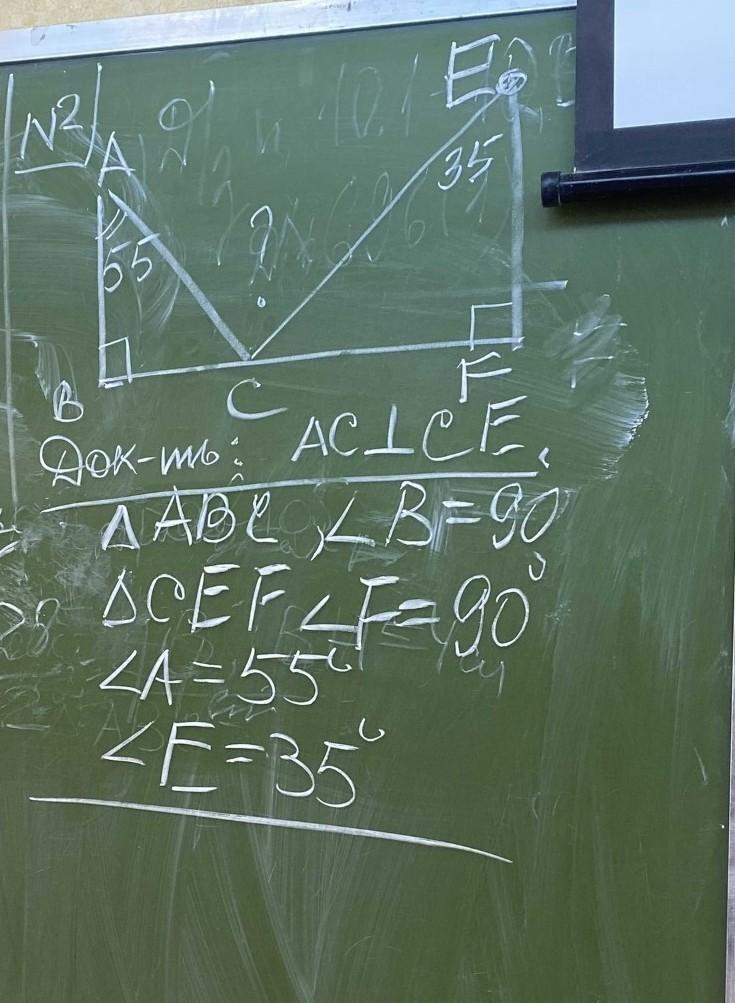 N2
A
E
55
35
?
B
C
F
Док-ть: AC⊥CE.
△ABC, ∠B=90
△CEF ∠F=90°
∠A=55°
∠E=35°